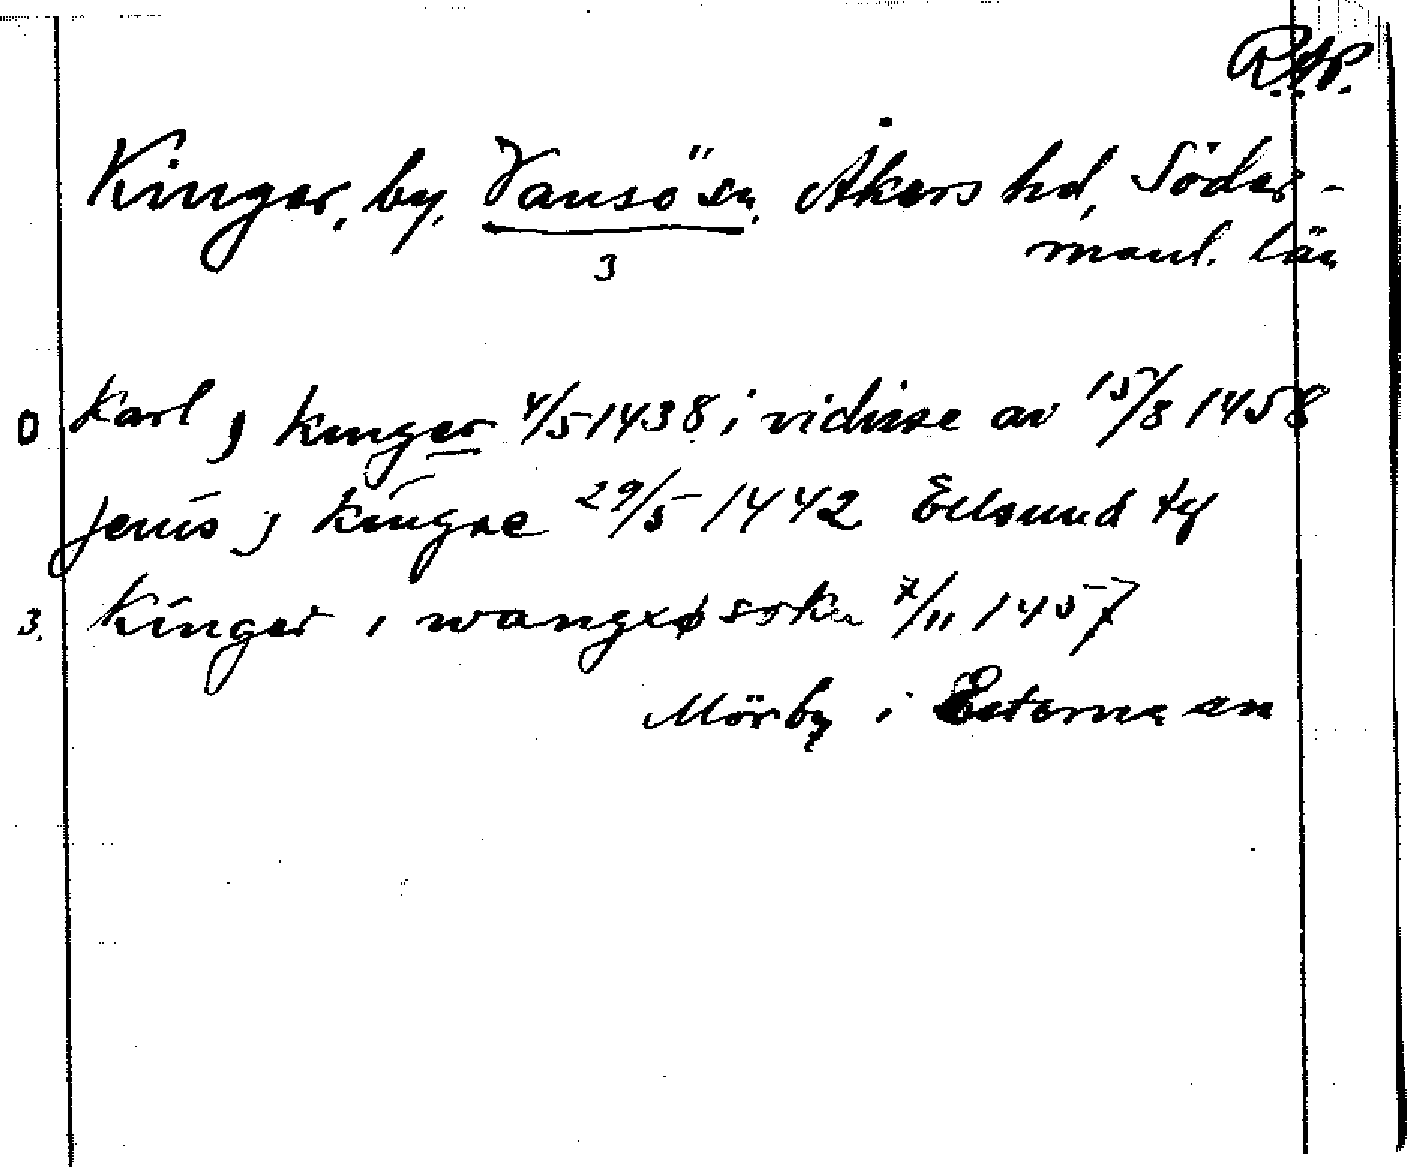 R.A.P.
Kinger, by, Vansö sn, Åkers hd, Söder-
manl. län
3
0 Karl j kinger 4/5 1438 i vidisse av 15/8 1458
jenis j kingre 29/5 1442 Edsund
3. Kinger i wangxø sokn 7/11 1457
Mörby i Esterna sn